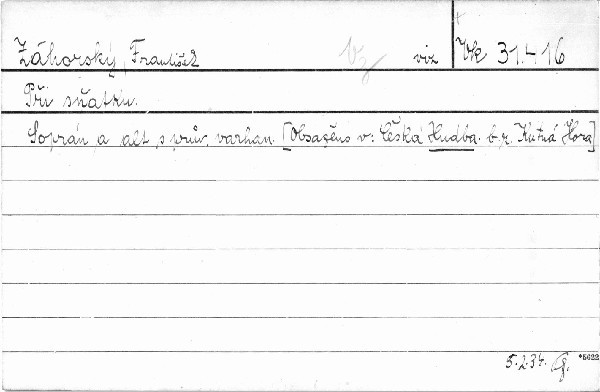 Záhorský, František viz Vk 31.416
Při sňatku.
Soprán a alt, s prův. varhan. [Obsaženo v: Česká Hudba. b.r. Kutná Hora]
5.2.34.
*5622